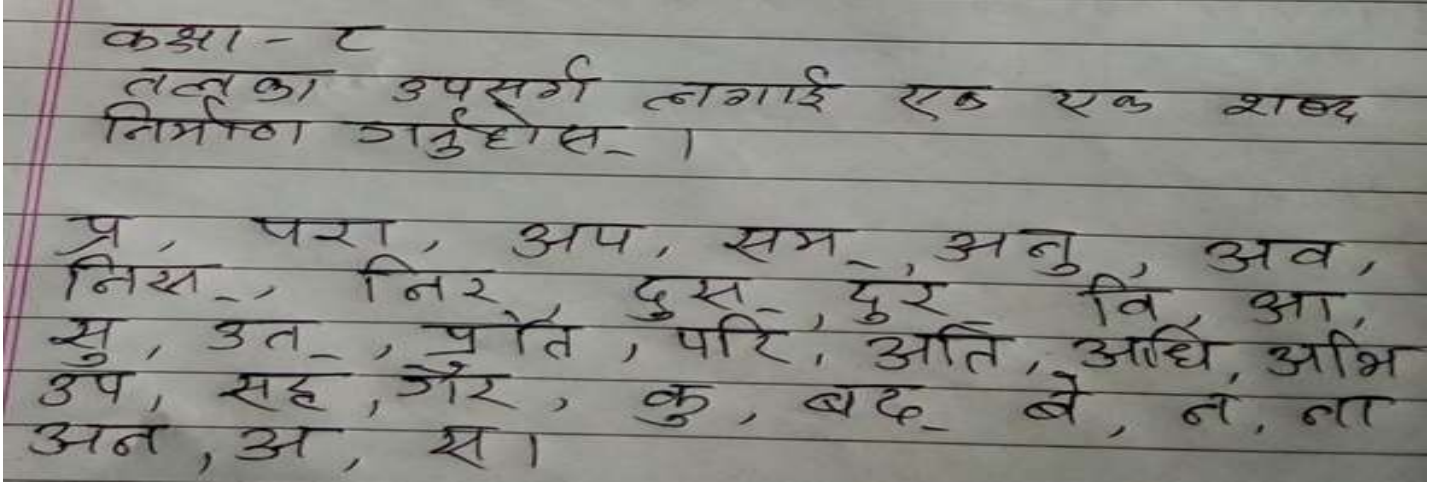 कक्षा - ८
तलका उपसर्ग लगाई एक एक शब्द
निर्माण गर्नुहोस् ।
प्र, परा, अप, सम्, अनु, अव,
निस्, निर, दुस्, दुर वि, आ,
सु, उत्, प्रति, परि, अति, अधि, अभि
उप, सह, गैर, कु, बद् बे, न, ना
अन, अ, स ।